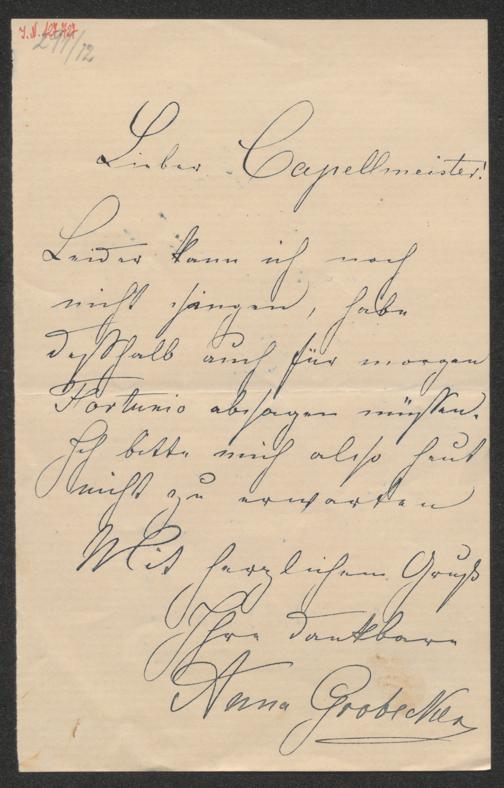 I.N. 127.727
241/12
Lieber Capellmeister!
Leider kann ich noch
nicht singen, habe
deßhalb auch für morgen
Fortunio absagen müssen.
Ich bitte mich also heut
nicht zu erwarten
Mit herzlichem Gruß
Ihre dankbare
Anna Grobecker